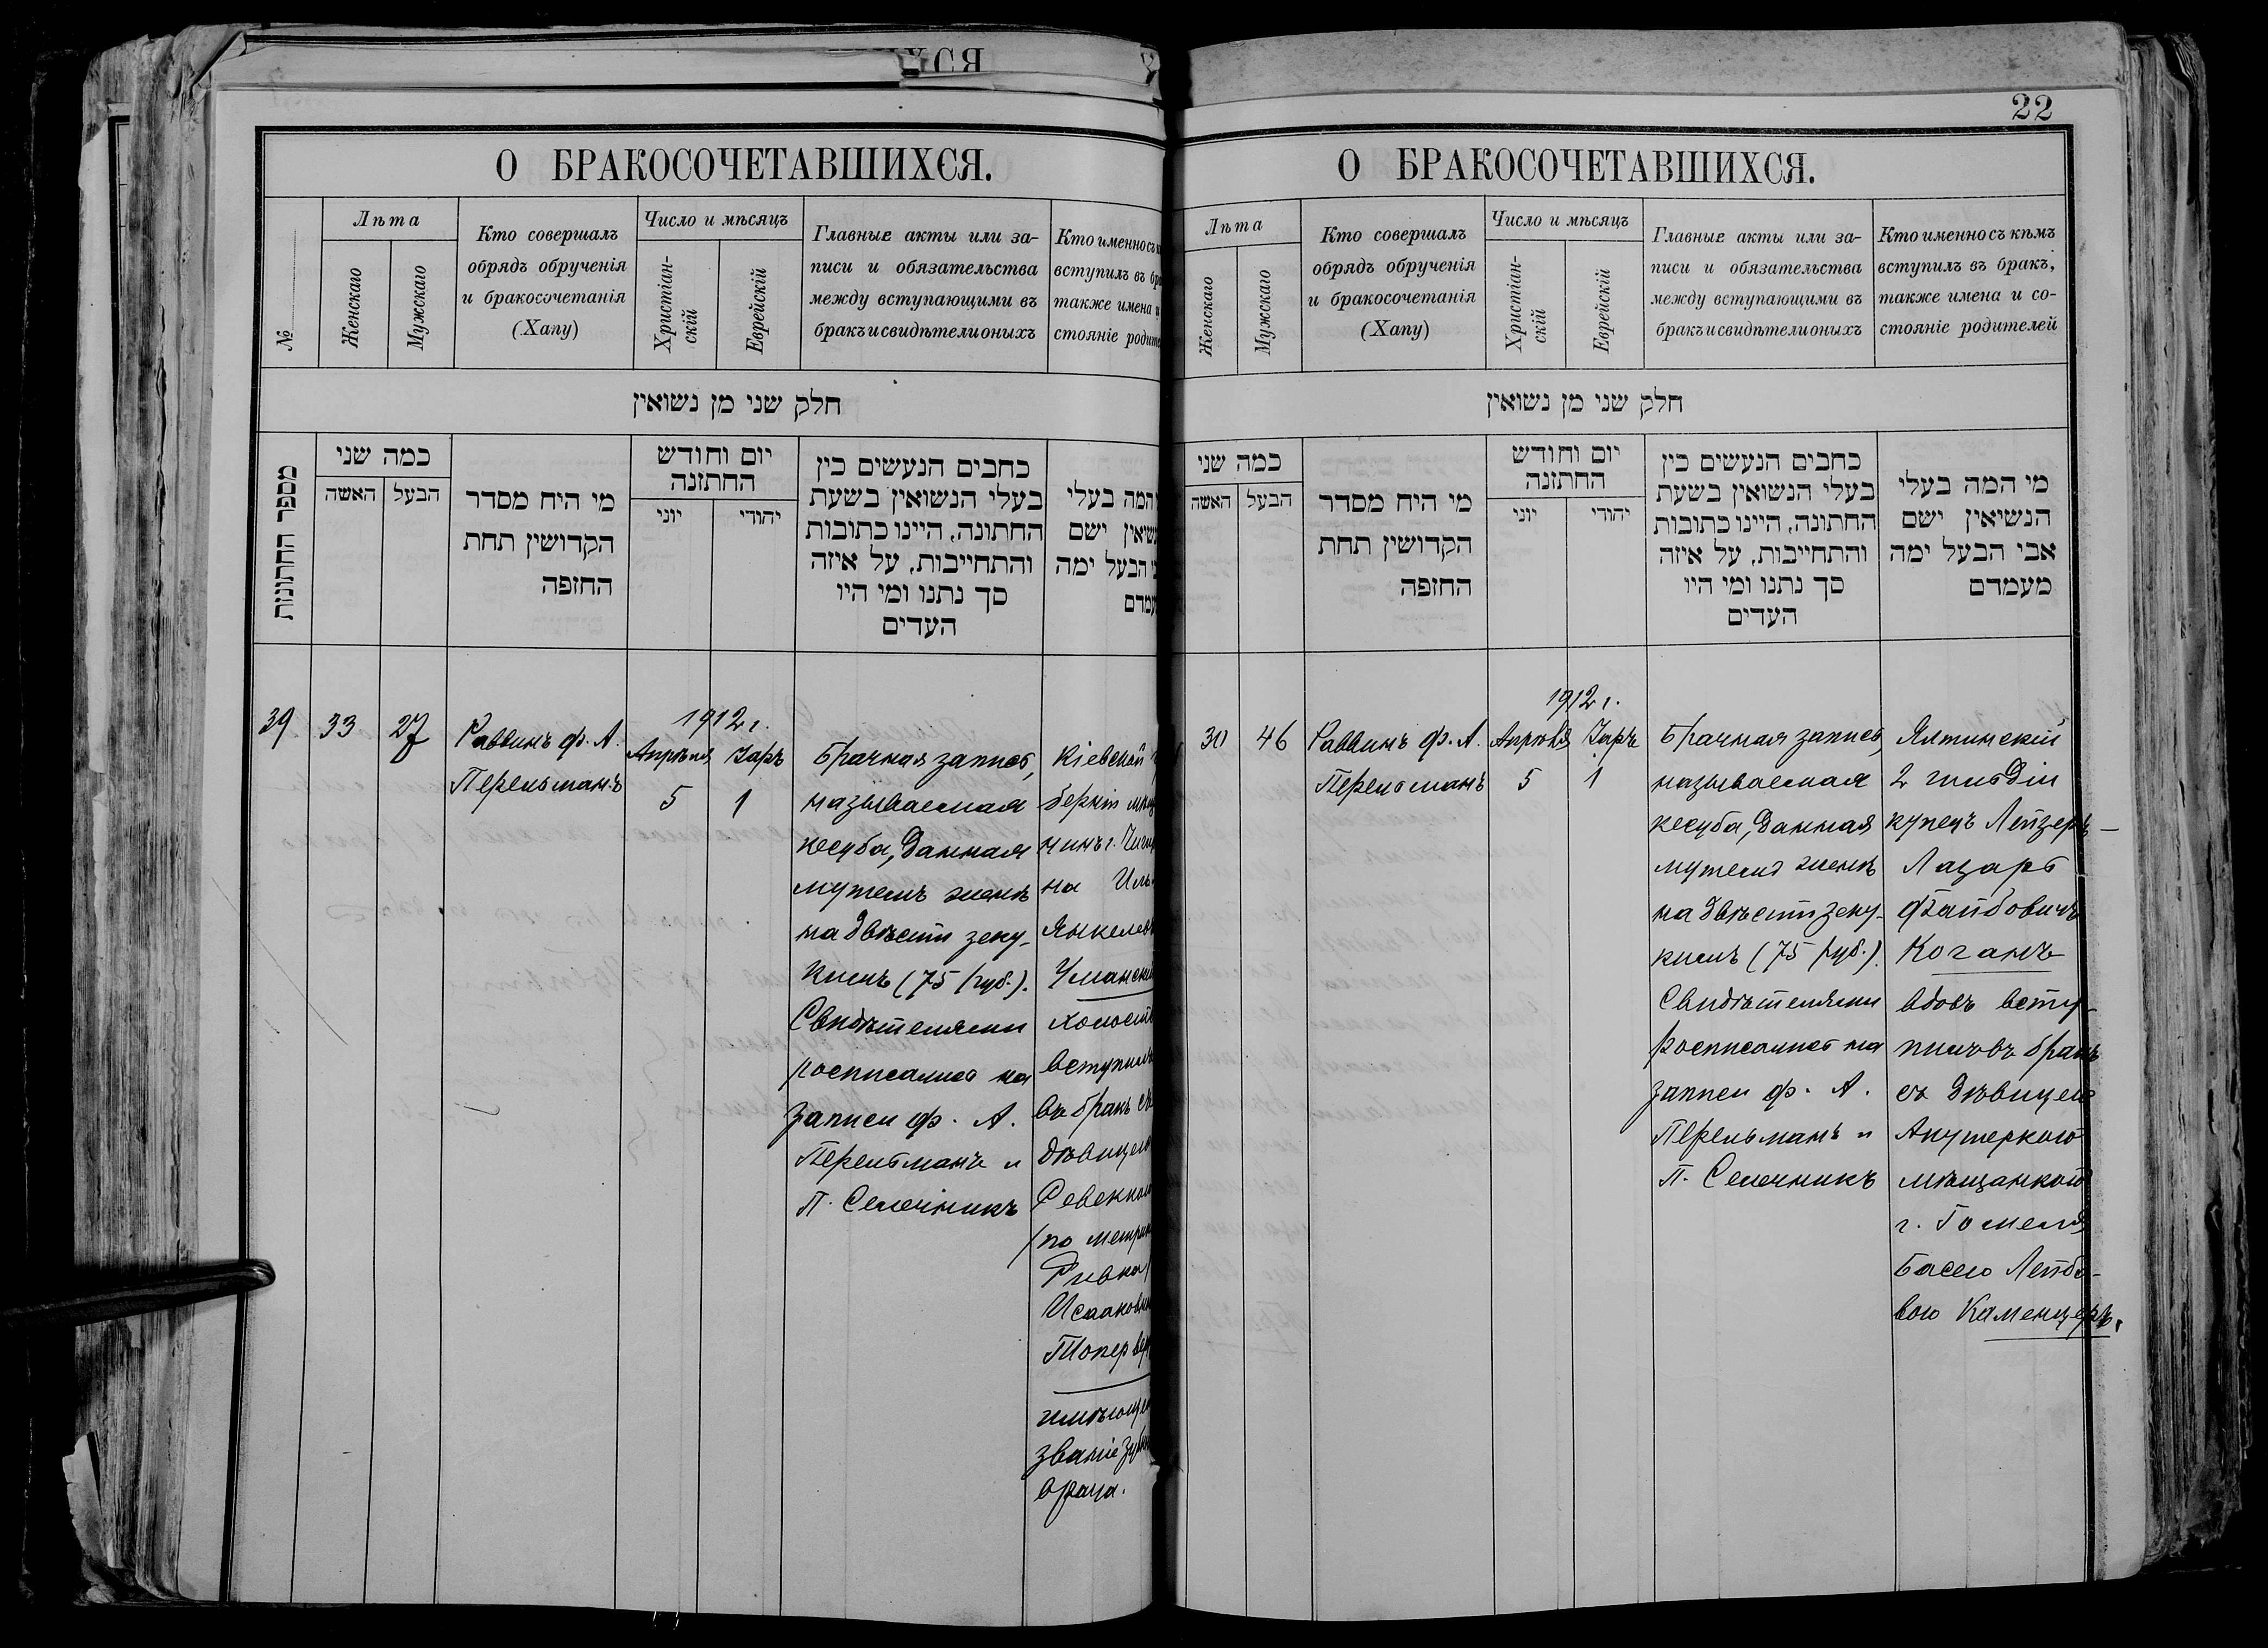 22
О БРАКОСОЧЕТАВШИХСЯ.
№
Лѣта
Женскаго
Мужскаго
Кто совершалъ
обрядъ обрученія
и бракосочетанія
(Хапу)
Число и мѣсяцъ
Христіан-
скій
Еврейскій
Главные акты или за-
писи и обязательства
между вступающими въ
бракъ и свидѣтели оныхъ
Кто именно съ
вступилъ въ
также имена
стояніе
חלק שני מן נשואין
מספר החתונות
כמה שני
האשה
הבעל
מי היח מסדר
הקדושין תחת
החופה
יום וחודש
החתונה
יוני
יהודי
כתבים הנעשים בין
בעלי הנשואין בשעת
החתונה, היינו כתובות
והתחייבות, על איזה
סך נתנו ומי היו
העדים
המה בעלי
ישם
הבעל ימה
39
33
27
Раввинъ Ф. А.
Перельманъ
1912 г.
Апрѣля
5
Iаръ
1
Брачная запись,
называемая
кесуба, данная
мужемъ женѣ
на двѣсти зеку-
кимъ (75 руб.).
Свидѣтелями
росписались на
записи Ф. А.
Перельманъ и
П. Селечникъ
Кіевской
берніи
на
вступилъ
въ бракъ съ
(по
Ривка)
званіе
врача.
О БРАКОСОЧЕТАВШИХСЯ.
Лѣта
Женскаго
Мужскаго
Кто совершалъ
обрядъ обрученія
и бракосочетанія
(Хапу)
Число и мѣсяцъ
Христіан-
скій
Еврейскій
Главные акты или за-
писи и обязательства
между вступающими въ
бракъ и свидѣтели оныхъ
Кто именно съ кѣмъ
вступилъ въ бракъ,
также имена и со-
стояніе родителей
חלק שני מן נשואין
כמה שני
האשה
הבעל
מי היח מסדר
הקדושין תחת
החופה
יום וחודש
החתונה
יוני
יהודי
כתבים הנעשים בין
בעלי הנשואין בשעת
החתונה, היינו כתובות
והתחייבות, על איזה
סך נתנו ומי היו
העדים
מי המה בעלי
הנשיאין ישם
אבי הבעל ימה
מעמדם
30
46
Раввинъ Ф. А.
Перельманъ
1912 г.
Апрѣля
5
Iаръ
1
Брачная запись,
называемая
кесуба, данная
мужемъ женѣ
на двѣсти зеку-
кимъ (75 руб.).
Свидѣтелями
росписались на
записи Ф. А.
Перельманъ и
П. Селечникъ
Ялтинскій
2 гильдіи
купецъ Лейзеръ-
Лазарь
Файбовичъ
Коганъ
вдовъ всту-
пилъ въ бракъ
съ дѣвицею
Акушеркою
мѣщанкою
г. Гомеля
Басею Лейбо-
вою Каменцеръ.